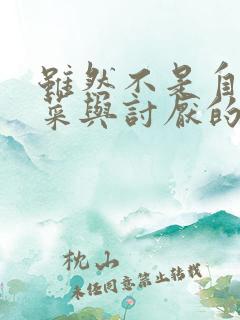 雖然不是自
菜與討厭的
枕山
未經同意禁止轉載